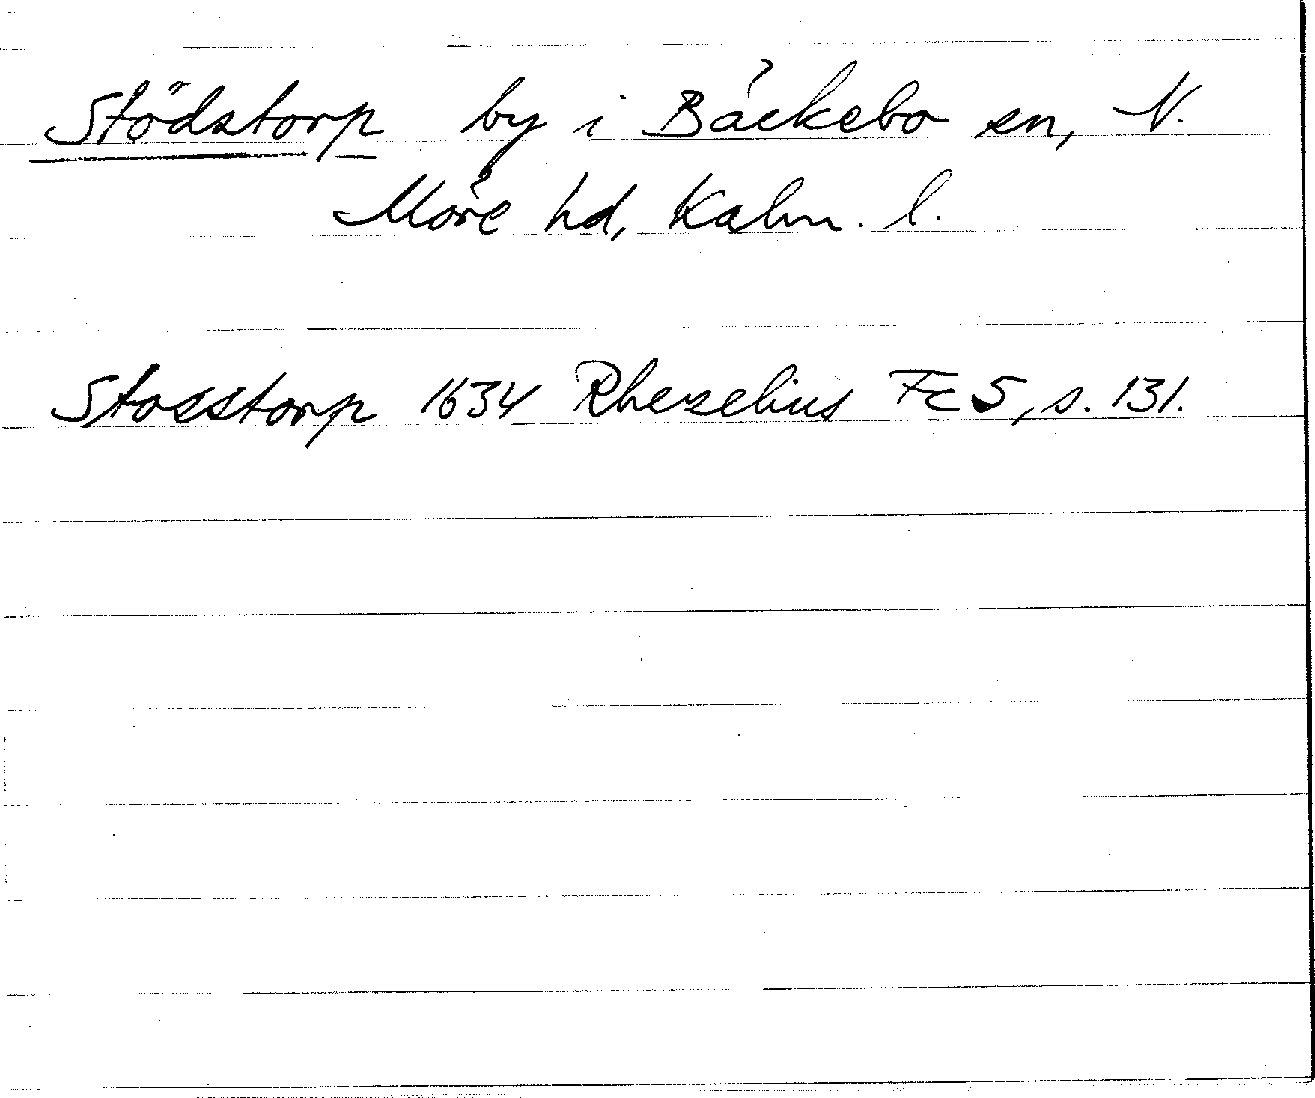 Stödstorp by i Bäckebo sn, N.
Möre hd, Kalm. l.
Stosstorp 1634 Rhezelius FES, s. 131.